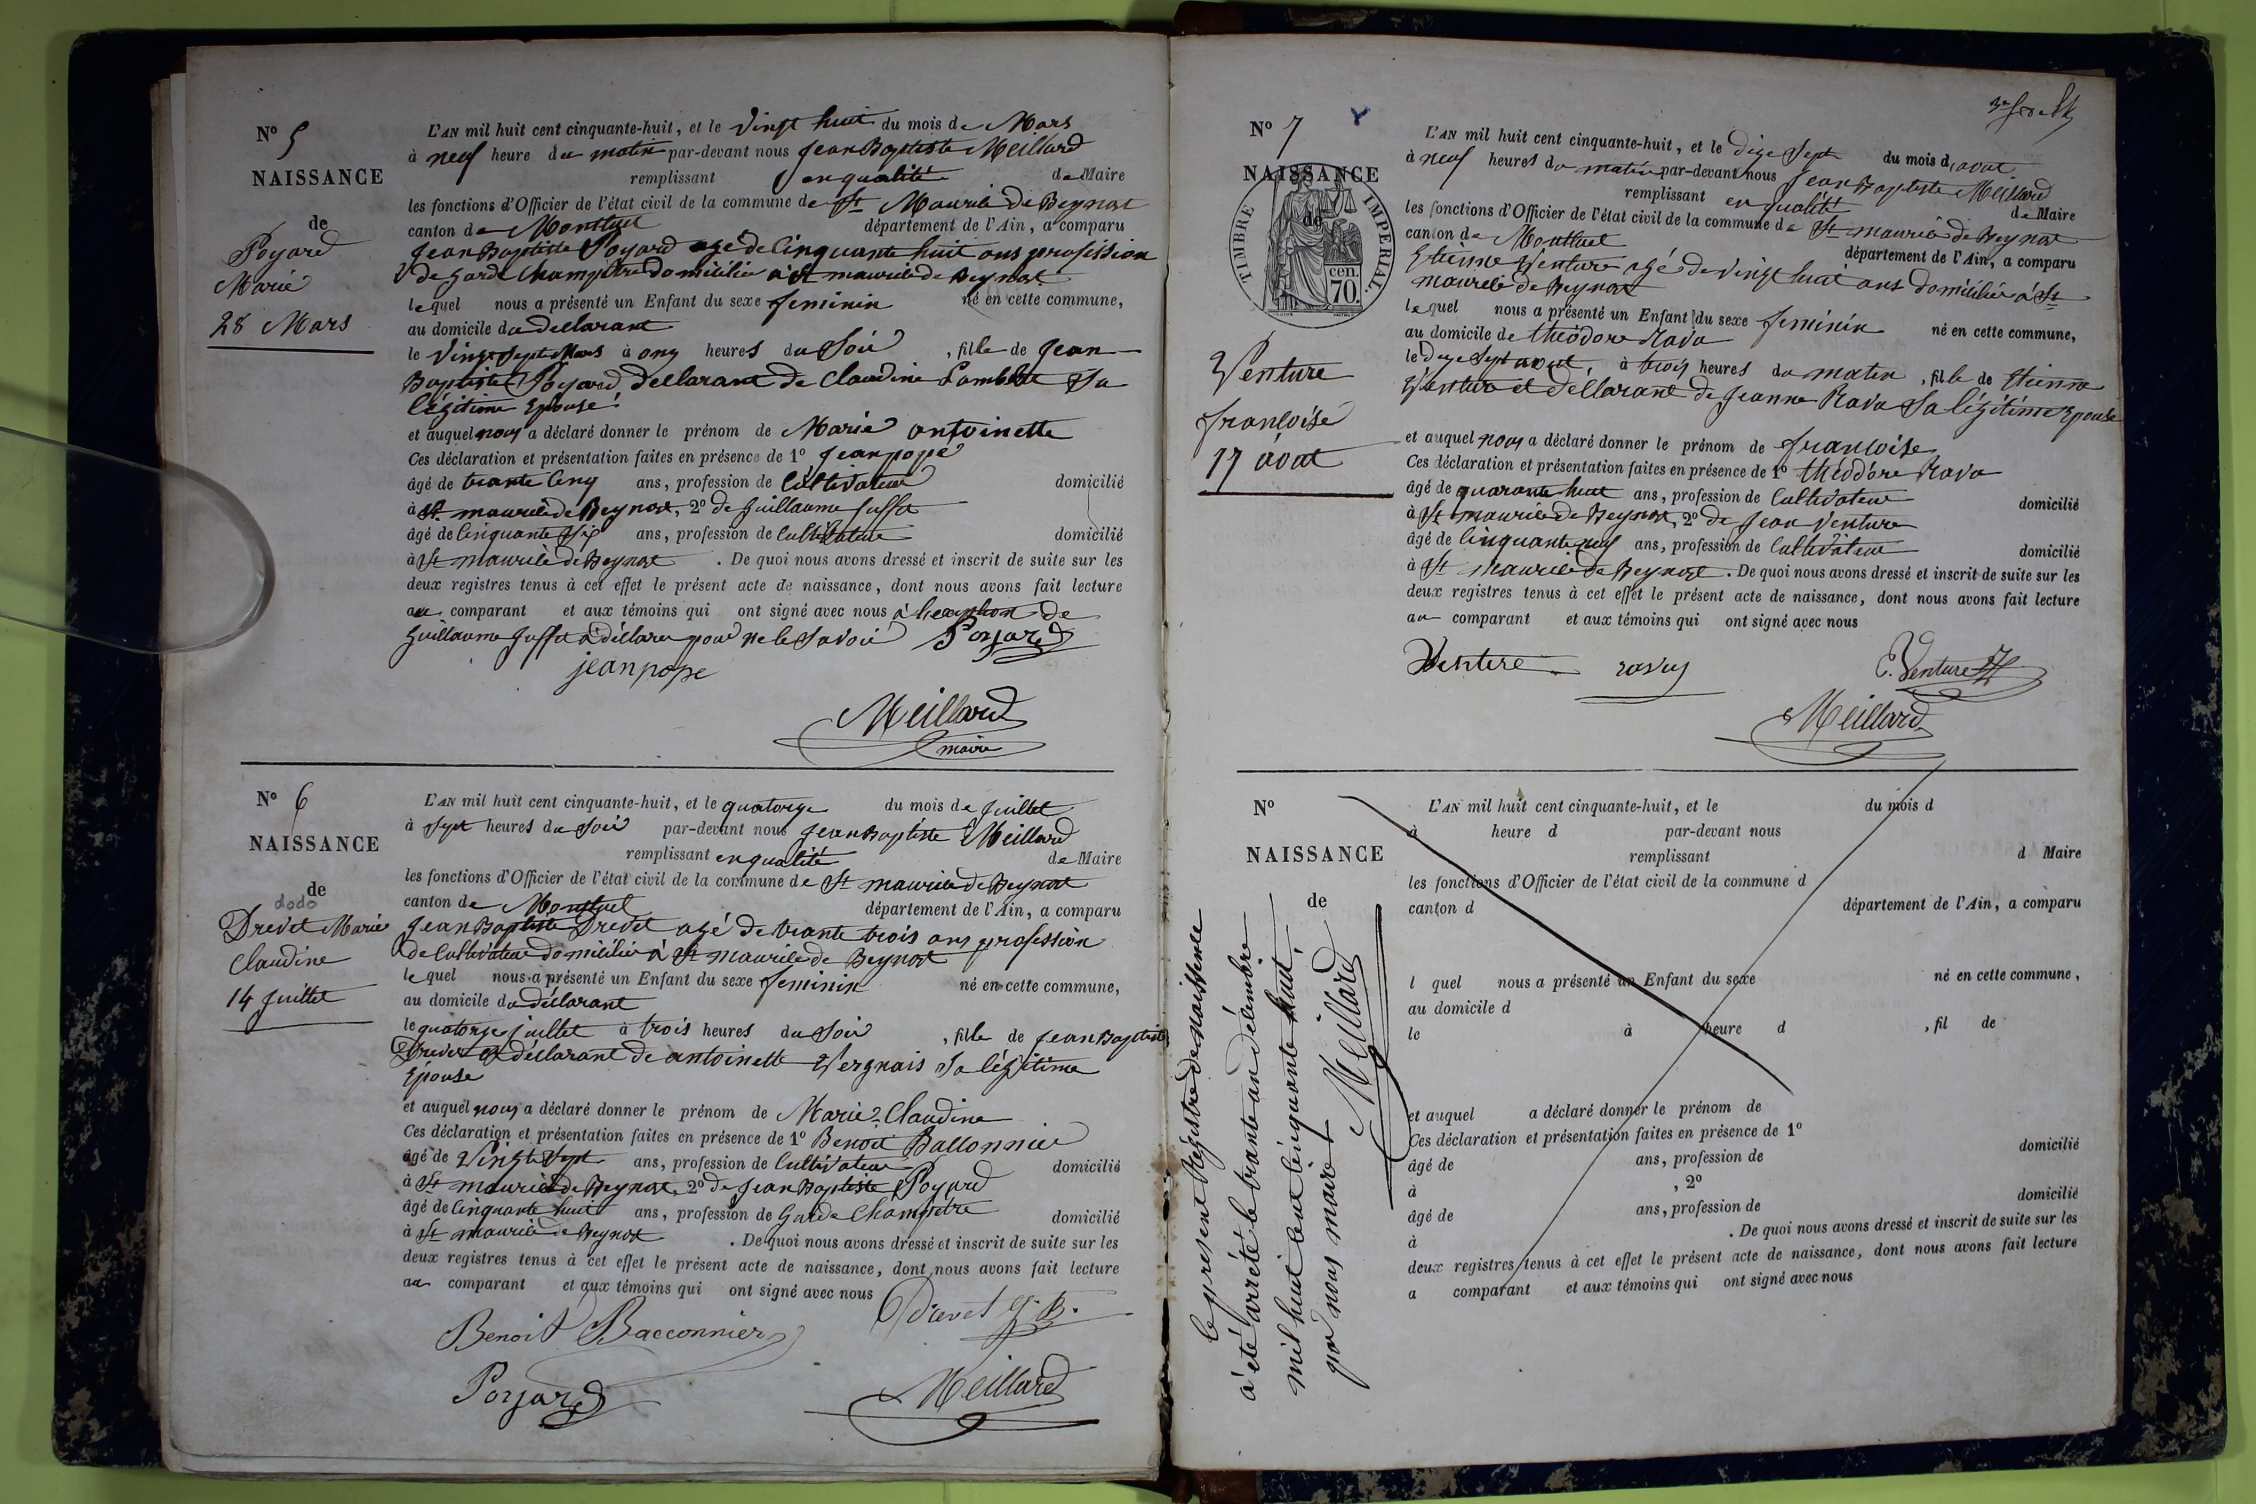 Nº 5
NAISSANCE
de
Poyard
Marie
28 Mars
L'AN mil huit cent cinquante-huit, et le Vingt huit du mois de Mars
à neuf heure du matin par-devant nous Jean Baptiste Meillard
remplissant en qualité de Maire
les fonctions d'Officier de l'état civil de la commune de St Maurice de Beynost
canton de Montluel département de l'Ain, a comparu
Jean Baptiste Poyard agé de Cinquante huit ans profession
de garde Champêtre domicilié à St maurice de Beynost
lequel nous a présenté un Enfant du sexe feminin né en cette commune,
au domicile du declarant
le Vingt Sept Mars à onz heures du Soir , fille de Jean
Baptiste Poyard declarant de Claudine Sa
légitime Epouse
et auquel nous a déclaré donner le prénom de Marie antoinette
Ces déclaration et présentation faites en présence de 1º Jean pope
âgé de trante Cinq ans, profession de Cultivateur domicilié
à St maurice de Beynost, 2º de Guillaume
âgé de Cinquante Six ans, profession de Cultivateur domicilié
à St maurice de Beynost . De quoi nous avons dressé et inscrit de suite sur les
deux registres tenus à cet effet le présent acte de naissance, dont nous avons fait lecture
au comparant et aux témoins qui ont signé avec nous à de
Guillaume à déclaré pour ne le Savoir Poyard
jean pope
Meillard
maire
Nº 6
NAISSANCE
de
dodo
Drevet Marie
Claudine
14 Juillet
L'AN mil huit cent cinquante-huit, et le quatorze du mois de Juillet
à Sept heures du Soir par-devant nous Jean Baptiste Meillard
remplissant en qualité de Maire
les fonctions d'Officier de l'état civil de la commune de St maurice de Beynost
canton de Montluel département de l'Ain, a comparu
Jean Baptiste Drevet agé de trante trois ans profession
de Cultivateur domicilié à St maurice de Beynost
lequel nous a présenté un Enfant du sexe feminin né en cette commune,
au domicile du déclarant
le quatorze juillet à trois heures du Soir , fille de Jean Baptiste
Drevet et déclarant de antoinette Vergnais Sa légitime
Epouse
et auquel nous a déclaré donner le prénom de Marie Claudine
Ces déclaration et présentation faites en présence de 1º Benoit Bacconnier
âgé de Vingt Sept ans, profession de Cultivateur domicilié
à St maurice de Beynost, 2º de Jean Baptiste Poyard
âgé de Cinquante huit ans, profession de Garde Champetre domicilié
à St maurice de Beynost . De quoi nous avons dressé et inscrit de suite sur les
deux registres tenus à cet effet le présent acte de naissance, dont nous avons fait lecture
au comparant et aux témoins qui ont signé avec nous
Drevet J. B.
Benoit Bacconnier
Poyard
Meillard
Nº 7
NAISSANCE
de
TIMBRE IMPERIAL
cen.
70.
Venture
françoise
17 août
L'AN mil huit cent cinquante-huit, et le dize Sept du mois d avut
à neuf heures du matin par-devant nous Jean Baptiste Meillard
remplissant en qualité de Maire
les fonctions d'Officier de l'état civil de la commune de St maurice de Beynost
canton de Montluel département de l'Ain, a comparu
Etienne Venture agé de Vingt huit ans domicilié à St
maurice de Beynost
lequel nous a présenté un Enfant du sexe feminin né en cette commune,
au domicile de théodore Rava
le dize Sept avut, à trois heures du matin , fille de Etienne
Venture et déclarant de Jeanne Rava Sa légitime Epouse
et auquel nous a déclaré donner le prénom de françoise
Ces déclaration et présentation faites en présence de 1º théodore Rava
âgé de quarante huit ans, profession de Cultivateur domicilié
à St maurice de Beynost, 2º de Jean Venture
âgé de Cinquante neuf ans, profession de Cultivateur domicilié
à St maurice de Beynost . De quoi nous avons dressé et inscrit de suite sur les
deux registres tenus à cet effet le présent acte de naissance, dont nous avons fait lecture
au comparant et aux témoins qui ont signé avec nous
Venture E. Venture
Meillard
Nº
NAISSANCE
de
L'AN mil huit cent cinquante-huit, et le du mois d
à heure d par-devant nous
remplissant d Maire
les fonctions d'Officier de l'état civil de la commune d
canton d département de l'Ain, a comparu
l quel nous a présenté un Enfant du sexe né en cette commune,
au domicile d
le à heure d , fil de
et auquel a déclaré donner le prénom de
Ces déclaration et présentation faites en présence de 1º
âgé de ans, profession de domicilié
à , 2º
âgé de ans, profession de domicilié
à . De quoi nous avons dressé et inscrit de suite sur les
deux registres tenus à cet effet le présent acte de naissance, dont nous avons fait lecture
a comparant et aux témoins qui ont signé avec nous
le présent Régistre de naissence
à été arrété le trante un décembre
mil huit cent cinquante huit,
par nous maire
Meillard